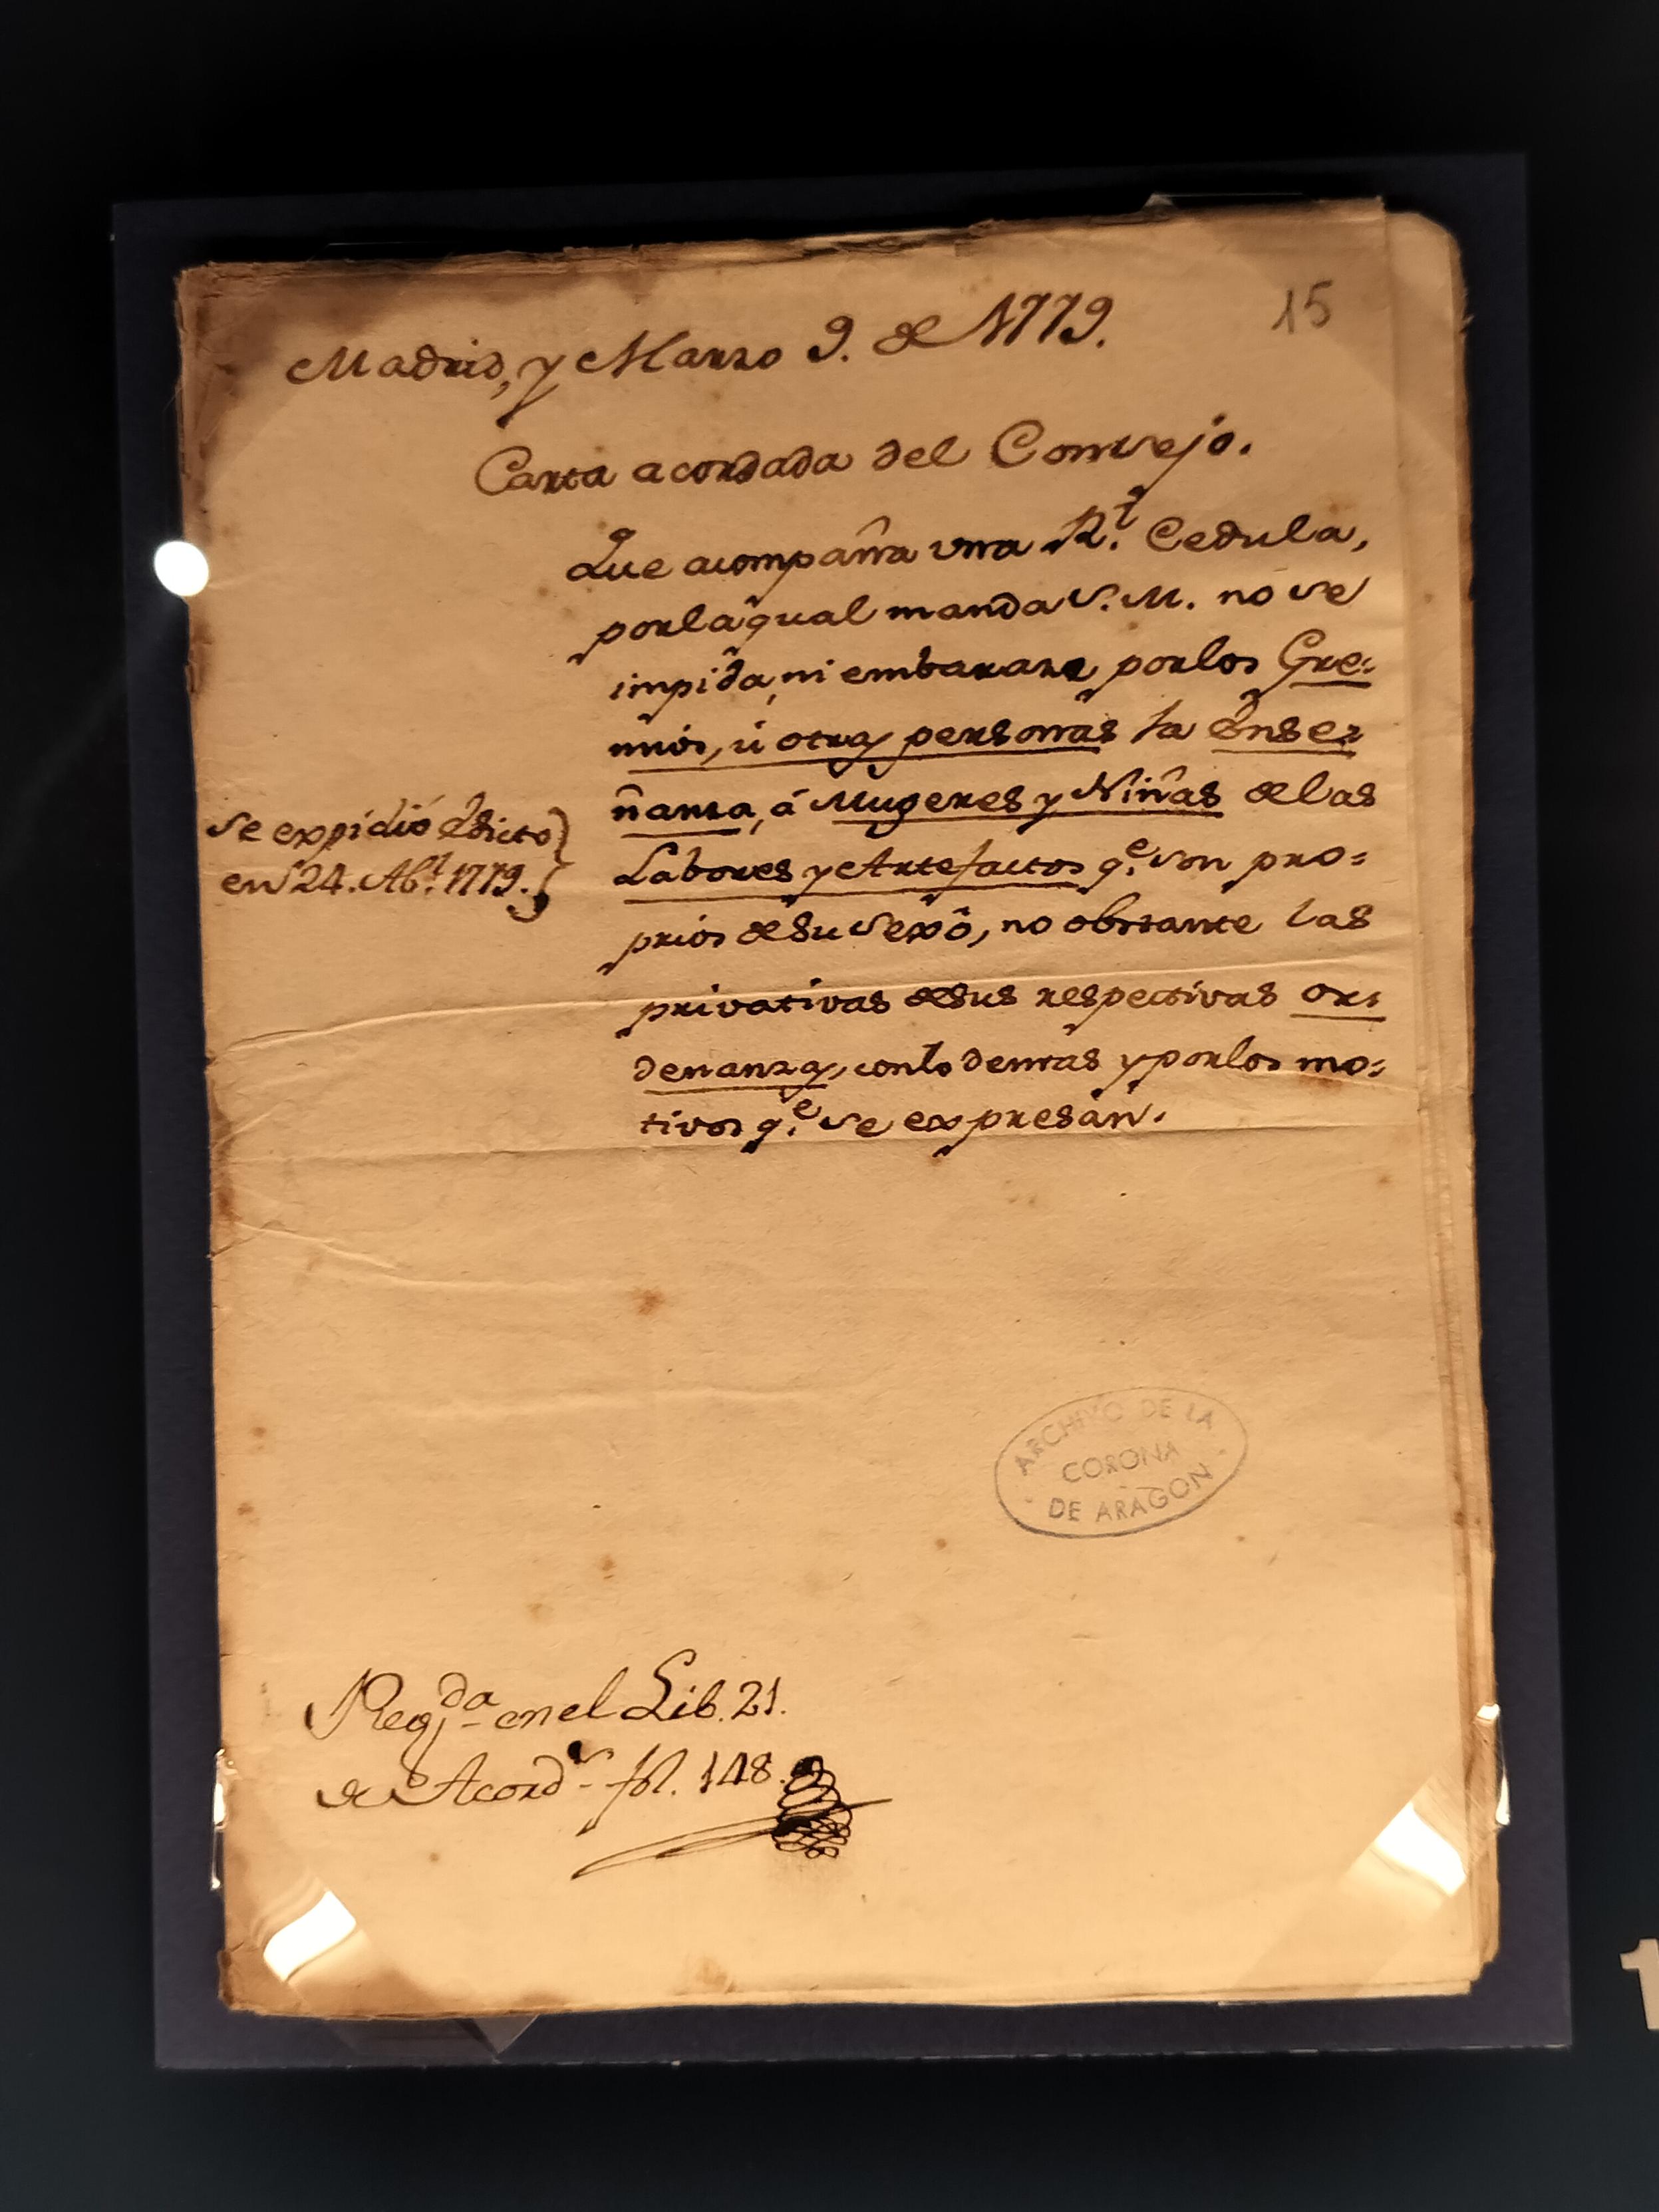 15
Madrid, y Marzo 9. de 1779.
Carta acordada del Consejo.
Que acompaña una R.l Cedula,
por la qual manda S. M. no se
impida, ni embaraze por los Gre=
mios, ú otras personas la Ense=
ñanza, á Mugeres y Niñas de las
Labores y Artefactos q.e son pro=
prios de su sexô, no obstante las
privativas de sus respectivas or=
denanzas, con lo demas y por los mo=
tivos q.e se expresan.
Se expidió Edicto
en 24. Ab.l 1779.
ARCHIVO DE LA
CORONA
DE ARAGON
Reg.da en el Lib. 21.
de Acord.s fol. 148.
1